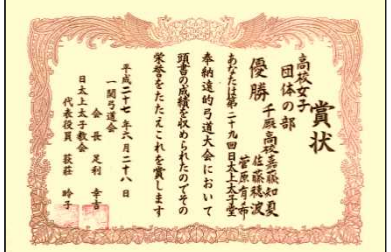 賞状
高校女子
団体の部
優勝 千厩高校 嘉藤知夏
佐藤穂波
菅原有布
あなたは第二十九回日太上太子堂
奉納遠的弓道大会において
頭書の成績を収められたのでその
栄誉をたたえこれを賞します
平成二十七年六月二十八日
一関弓道会
会長 足利幸吉
日太上太子教会
代表役員 荻荘昤子